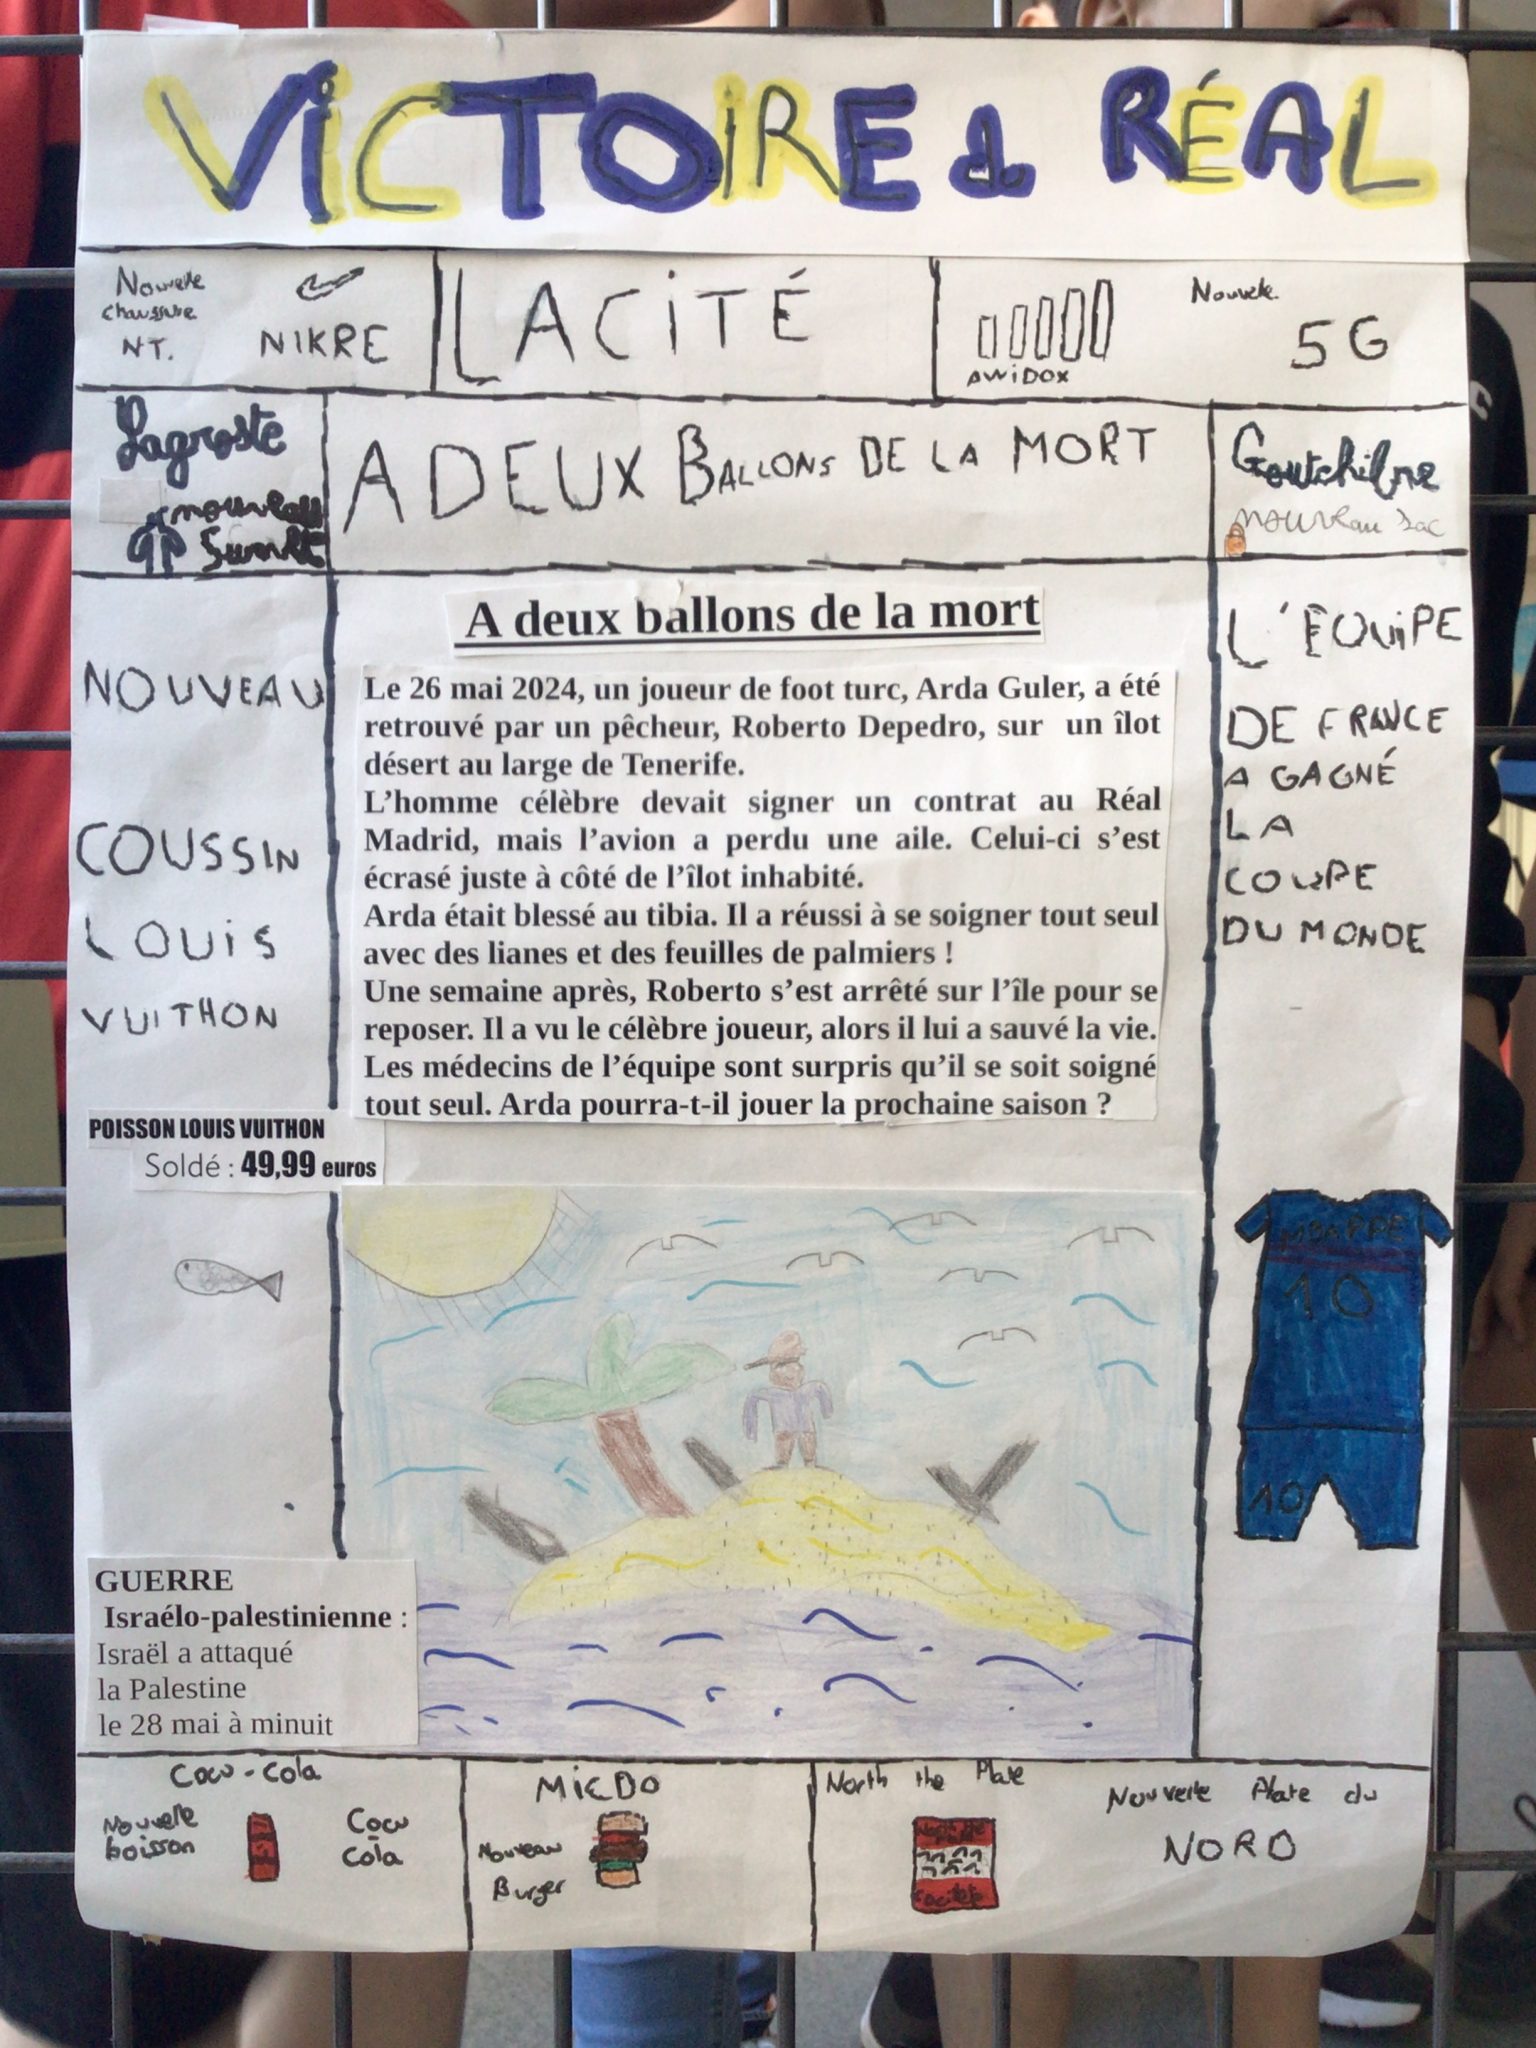 VICTOIRE du RÉAL
Nouvelle
chaussure
NT.
NIKRE
LACITÉ
AWIDOX
Nouvelle
5G
Lagroste
nouveau
A DEUX BALLONS DE LA MORT
Goutchibre
nouveau sac
NOUVEAU
COUSSIN
LOUIS
VUITHON
POISSON LOUIS VUITHON
Soldé : 49,99 euros
GUERRE
Israélo-palestinienne :
Israël a attaqué
la Palestine
le 28 mai à minuit
A deux ballons de la mort
Le 26 mai 2024, un joueur de foot turc, Arda Guler, a été
retrouvé par un pêcheur, Roberto Depedro, sur un îlot
désert au large de Tenerife.
L’homme célèbre devait signer un contrat au Réal
Madrid, mais l’avion a perdu une aile. Celui-ci s’est
écrasé juste à côté de l’îlot inhabité.
Arda était blessé au tibia. Il a réussi à se soigner tout seul
avec des lianes et des feuilles de palmiers !
Une semaine après, Roberto s’est arrêté sur l’île pour se
reposer. Il a vu le célèbre joueur, alors il lui a sauvé la vie.
Les médecins de l’équipe sont surpris qu’il se soit soigné
tout seul. Arda pourra-t-il jouer la prochaine saison ?
L'ÉQUIPE
DE FRANCE
A GAGNÉ
LA
COUPE
DU MONDE
MBAPPE
10
10
Cocu-Cola
Nouvelle
boisson
Cocu
Cola
MICDO
Nouveau
Burger
North the Plate
Nouvelle Plate du
NORD